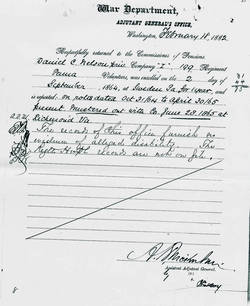 War Department,
ADJUTANT GENERAL'S OFFICE,
Washington, February 18, 1882
Respectfully returned to the Commissioner of Pensions.
Daniel C. Nelson Company "I" 199 Regiment
Penna Volunteers, was enrolled on the 2 day of
September, 1864, at Sweden Pa for 1 year, and
is reported: on rolls dated Oct 31/64 to April 30/65
present Mustered out with Co. June 28, 1865 at
Richmond Va
The records of this office furnish no
evidence of alleged disability. The
Regt'l Hosp'l records are not on file.
Assistant Adjutant General.
8